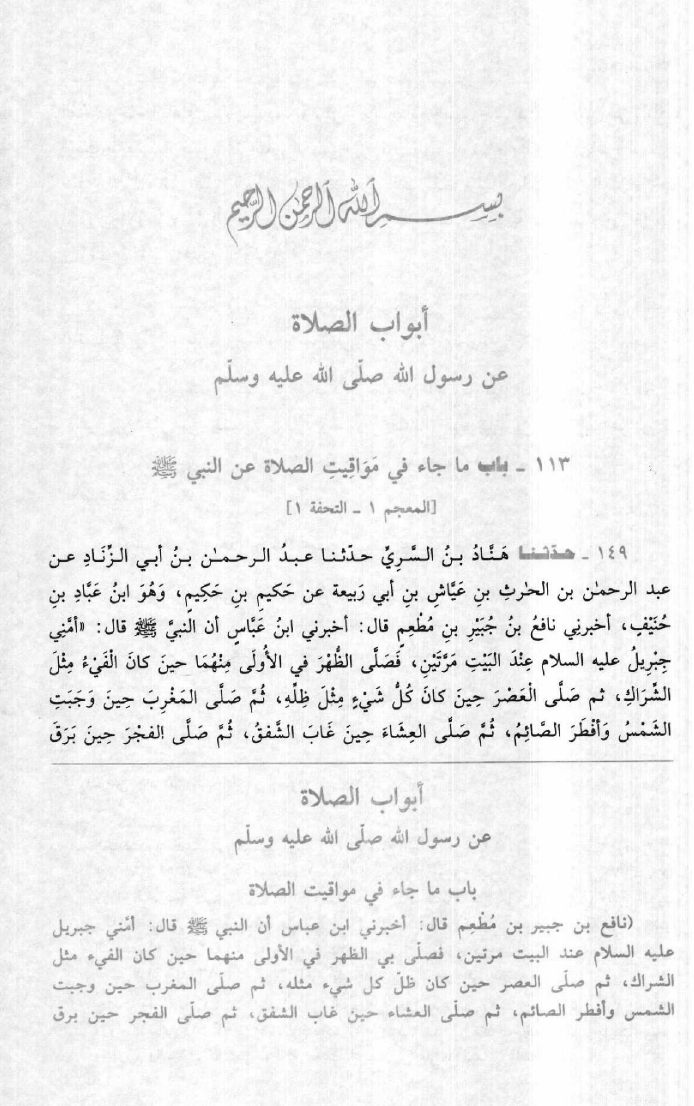 بسم الله الرحمن الرحيم
أبواب الصلاة
عن رسول الله صلّى الله عليه وسلّم
١١٣ ـ باب ما جاء في مَوَاقِيتِ الصلاة عن النبي ﷺ
[المعجم ١ ـ التحفة ١]
١٤٩ ـ حدّثنا هَنَّادُ بنُ السَّرِيِّ حدّثنا عبدُ الرحمٰن بنُ أبي الزِّنَادِ عن
عبد الرحمٰن بن الحٰرثِ بنِ عَيَّاشِ بنِ أبي رَبيعة عن حَكيمِ بنِ حَكِيمٍ، وَهُوَ ابنُ عَبَّادِ بنِ
حُنَيْفٍ، أخبرنِي نافعُ بنُ جُبَيْرِ بنِ مُطْعِمٍ قال: أخبرني ابنُ عَبَّاسٍ أن النبيَّ ﷺ قال: «أمَّنِي
جِبْرِيلُ عليه السلام عِنْدَ البَيْتِ مَرَّتَيْنِ، فَصَلَّى الظُّهْرَ في الأُولَى مِنْهُمَا حينَ كانَ الْفَيْءُ مِثْلَ
الشِّرَاكِ، ثم صَلَّى الْعَصْرَ حِينَ كانَ كُلُّ شَيْءٍ مِثْلَ ظِلِّهِ، ثُمَّ صَلَّى المَغْرِبَ حِينَ وَجَبَتِ
الشَمْسُ وَأفْطَرَ الصَّائِمُ، ثُمَّ صَلَّى العِشَاءَ حِينَ غَابَ الشَّفقُ، ثُمَّ صَلَّى الفجْرَ حِينَ بَرَقَ
أبواب الصلاة
عن رسول الله صلّى الله عليه وسلّم
باب ما جاء في مواقيت الصلاة
(نافع بن جبير بن مُطْعِم قال: أخبرني ابن عباس أن النبي ﷺ قال: أمّني جبريل
عليه السلام عند البيت مرتين، فصلّى بي الظهر في الأولى منهما حين كان الفيء مثل
الشراك، ثم صلّى العصر حين كان ظلّ كل شيء مثله، ثم صلّى المغرب حين وجبت
الشمس وأفطر الصائم، ثم صلّى العشاء حين غاب الشفق، ثم صلّى الفجر حين برق